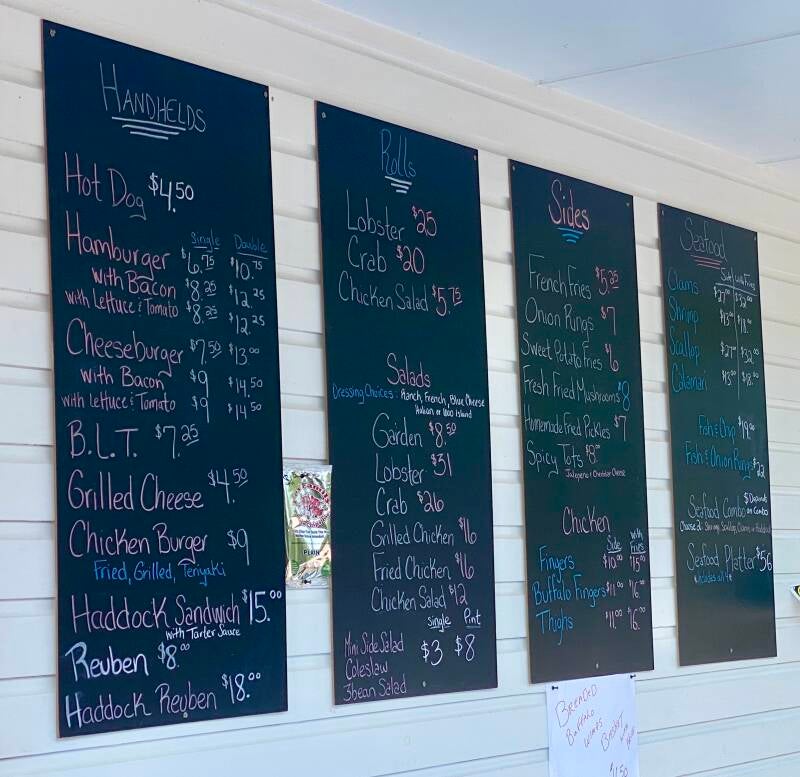 HANDHELDS
Hot Dog $4.50
Single Double
Hamburger $6.75 $10.75
with Bacon $8.25 $12.25
with Lettuce & Tomato $8.25 $12.25
Cheeseburger $7.50 $13.00
with Bacon $9 $14.50
with Lettuce & Tomato $9 $14.50
B.L.T. $7.25
Grilled Cheese $4.50
Chicken Burger $9
Fried, Grilled, Teriyaki
Haddock Sandwich $15.00
with Tarter Sauce
Reuben $8.00
Haddock Reuben $18.00
Rolls
Lobster $25
Crab $20
Chicken Salad $5.75
Salads
Dressing Choices: Ranch, French, Blue Cheese
Italian or 1000 Island
Garden $8.50
Lobster $31
Crab $26
Grilled Chicken $16
Fried Chicken $16
Chicken Salad $12
Single Pint
Mini Side Salad
Coleslaw $3 $8
3bean Salad
Sides
French Fries $5.25
Onion Rings $7
Sweet Potato Fries $6
Fresh Fried Mushrooms $8
Homemade Fried Pickles $7
Spicy Tots $8.00
Jalapeno & Cheddar Cheese
Chicken
Side with Fries
Fingers $10.00 $15.00
Buffalo Fingers $11.00 $16.00
Thighs $11.00 $16.00
Seafood
Side with Fries
Clams $27.00 $32.00
Shrimp $13.00 $18.00
Scallop $27.00 $32.00
Calamari $13.00 $18.00
Fish & Chip $19.00
Fish & Onion Rings $22
Seafood Combo $ Depends on Combo
Choose 2: Shrimp, Scallop, Clams, or Haddock
Seafood Platter $56
includes all 4
PLAIN
BREADED
BUFFALO
WINGS
BASKET